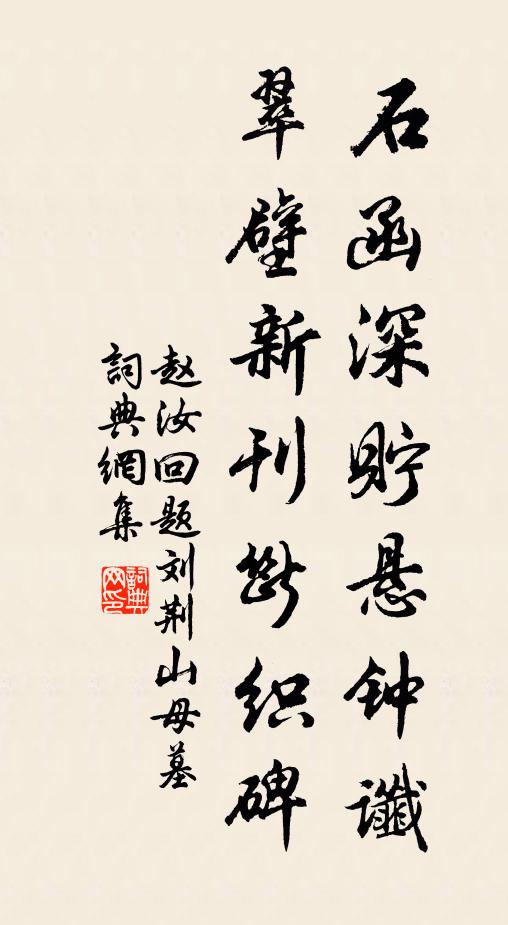 石函深貯悬钟讖
翠壁新刊斷织碑
赵汝回题刘荆山母墓
詞典網集
詞典网印